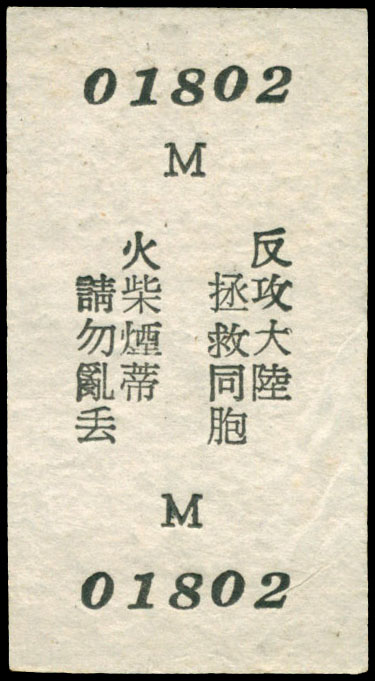 01802
M
反攻大陸
拯救同胞
火柴煙蒂
請勿亂丢
M
01802